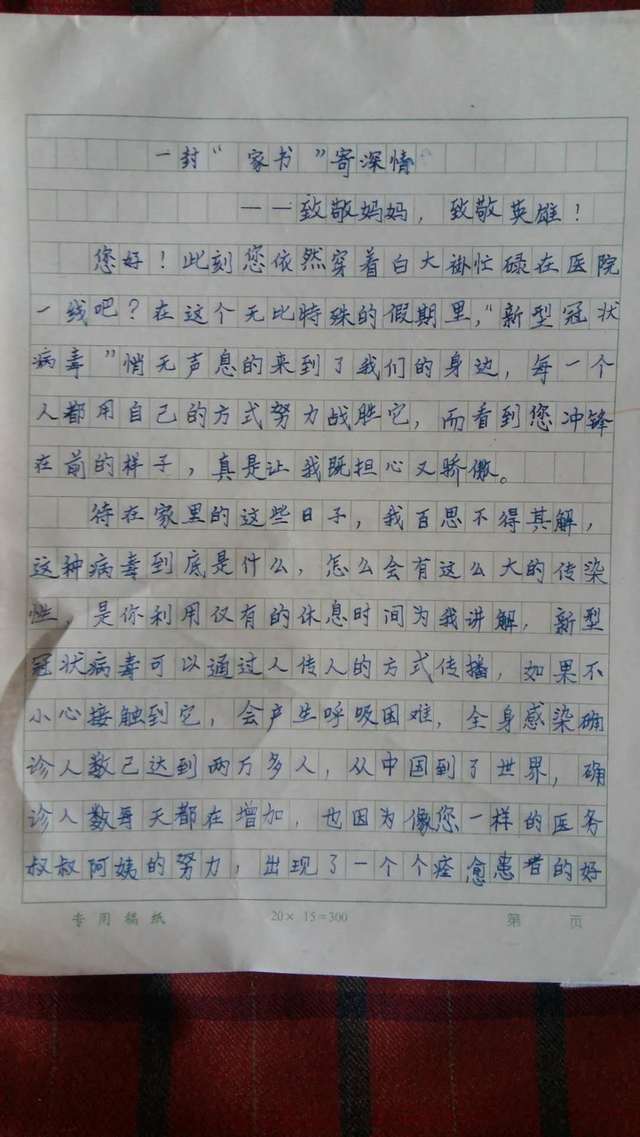 一封“家书”寄深情
——致敬妈妈，致敬英雄！
您好！此刻您依然穿着白大褂忙碌在医院
一线吧？在这个无比特殊的假期里，“新型冠状
病毒”悄无声息的来到了我们的身边，每一个
人都用自己的方式努力战胜它，而看到您冲锋
在前的样子，真是让我既担心又骄傲。
待在家里的这些日子，我百思不得其解，
这种病毒到底是什么，怎么会有这么大的传染
性，是你利用仅有的休息时间为我讲解，新型
冠状病毒可以通过人传人的方式传播，如果不
小心接触到它，会产生呼吸困难，全身感染确
诊人数已达到两万多人，从中国到了世界，确
诊人数每天都在增加，也因为像您一样的医务
叔叔阿姨的努力，出现了一个个痊愈患者的好
专用稿纸 20×15=300 第 页